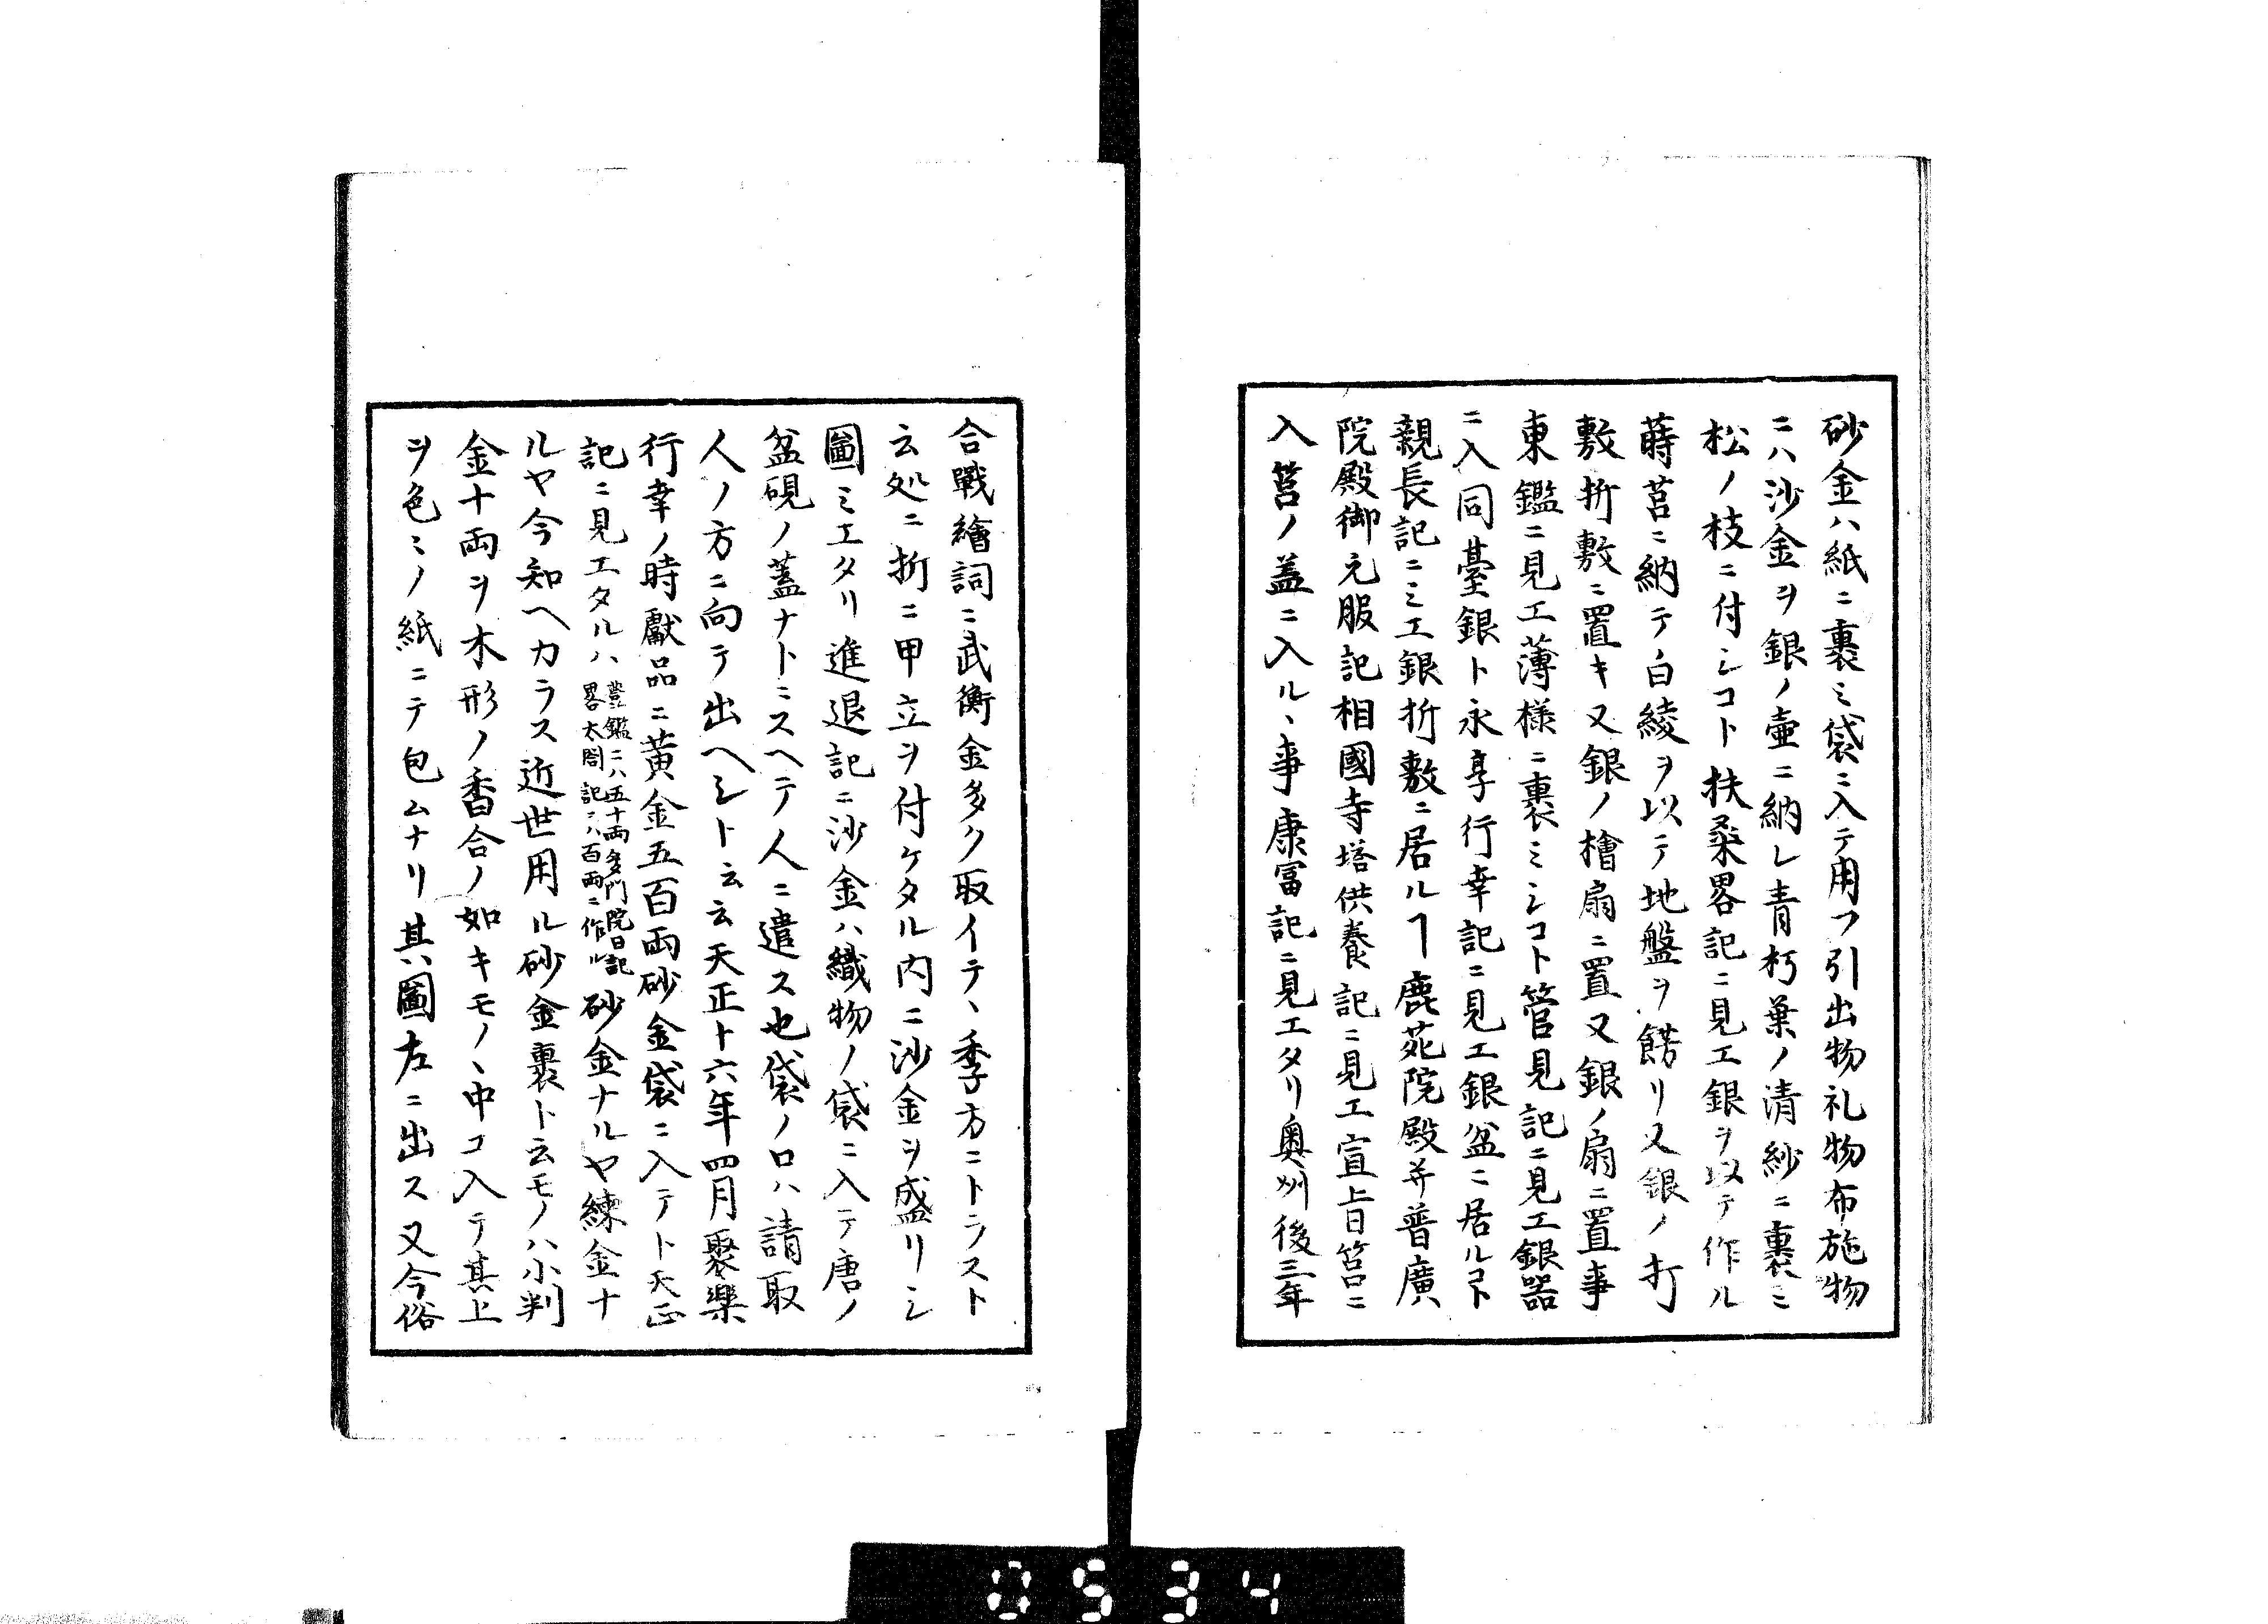 砂金ハ紙ニ裹ミ袋ニ入テ用フ引出物礼物布施物
ニハ沙金ヲ銀ノ壷ニ納レ青朽葉ノ清紗ニ裹ミ
松ノ枝ニ付シコト扶桑畧記ニ見エ銀ヲ以テ作ル
蒔筥ニ納テ白綾ヲ以テ地盤ヲ餝リ又銀ノ打
敷折敷ニ置キ又銀ノ檜扇ニ置又銀ノ扇ニ置事
東鑑ニ見エ薄様ニ裹ミシコト管見記ニ見エ銀器
ニ入同臺銀ト永享行幸記ニ見エ銀盆ニ居ルコト
親長記ニミエ銀折敷ニ居ルヿ鹿苑院殿并普廣
院殿御元服記相國寺塔供養記ニ見エ宣旨筥ニ
入筥ノ盖ニ入ルヽ事康冨記ニ見エタリ奥州後三年
合戰繪詞ニ武衡金多ク取イテヽ季方ニトラスト
云処ニ折ニ甲立ヲ付ケタル内ニ沙金ヲ盛リシ
圖ミエタリ進退記ニ沙金ハ織物ノ袋ニ入テ唐ノ
盆硯ノ蓋ナトニスヘテ人ニ遣ス也袋ノ口ハ請取
人ノ方ニ向テ出ヘシト云云天正十六年四月聚樂
行幸ノ時獻品ニ黄金五百両砂金袋ニ入テト天正
記ニ見エタルハ豊鑑ニハ五十両多門院日記畧太閤記ニハ百両ニ作ル砂金ナルヤ練金ナ
ルヤ今知ヘカラス近世用ル砂金裹ト云モノハ小判
金十両ヲ木形ノ香合ノ如キモノヽ中コ入テ其上
ヲ色ミノ紙ニテ包ムナリ其圖左ニ出ス又今俗
0534